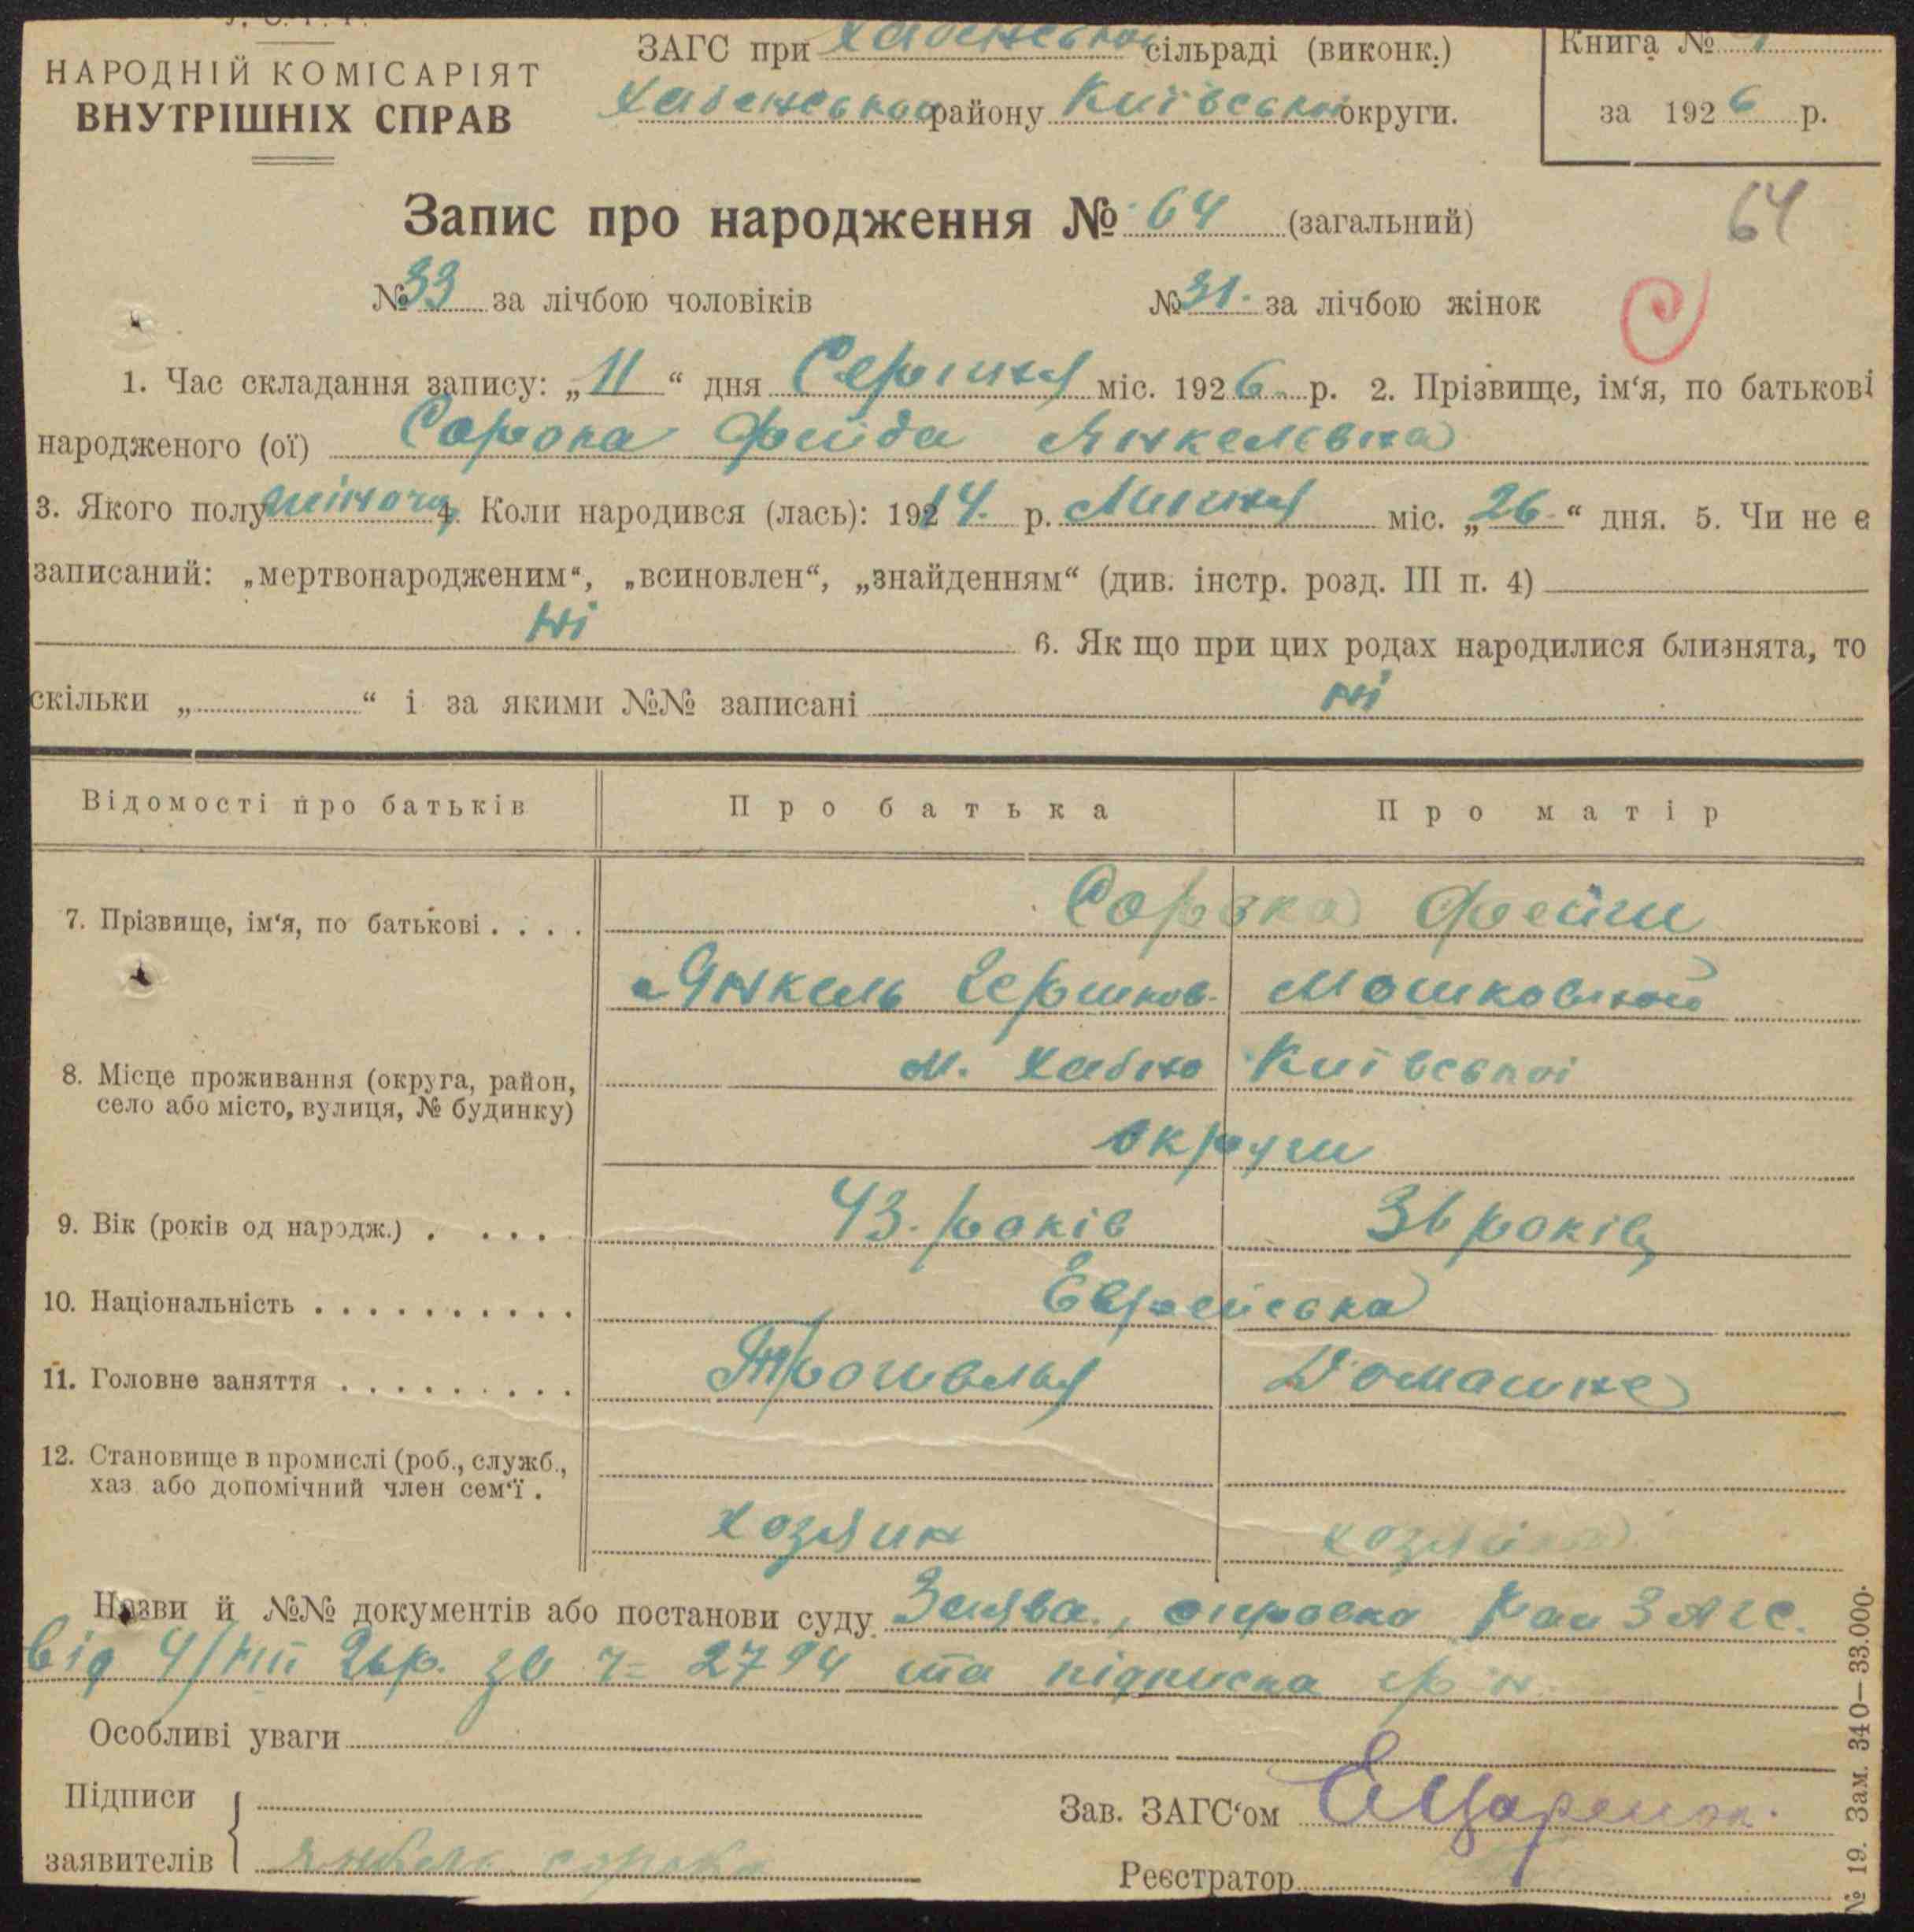 У. С. Р. Р.
НАРОДНІЙ КОМІСАРІЯТ
ВНУТРІШНІХ СПРАВ
ЗАГС при Хабенській сільраді (виконк.)
Хабенського району Київської округи.
Книга №
за 1926 р.
Запис про народження № 64 (загальний)
64
№ 33 за лічбою чоловіків № 31. за лічбою жінок
1. Час складання запису: „11“ дня Серпня міс. 1926. р. 2. Прізвище, ім‘я, по батькові
народженого (ої) Сорока Фейда Янкелевна
3. Якого полу жіночу 4. Коли народився (лась): 1914. р. Липня міс. „26.“ дня. 5. Чи не є
записаний: „мертвонародженим“, „всиновлен“, „знайденням“ (див. інстр. розд. III п. 4)
ні 6. Як що при цих родах народилися близнята, то
скільки „ “ і за якими №№ записані ні
Відомості про батьків Про батька Про матір
7. Прізвище, ім‘я, по батькові . . . . Сорока Фейги
Янкель Гершков. Мошковной
8. Місце проживання (округа, район, м. Хабно Київської
село або місто, вулиця, № будинку)
округи
9. Вік (років од нарoдж.) . . . . 43. років 36 років
10. Національність . . . . . . . . . . Еврейська
11. Головне заняття . . . . . . . . . Торговля Домашнє
12. Становище в промислі (роб., служб.,
хаз або допомічний член сем‘ї .
хозяин хозяйка
Назви й №№ документів або постанови суду Заява, справка Рай ЗАГС.
від 4/VIII 26р. за ч= 2794 та підписка гр'н.
Особливі уваги
Підписи
заявителів Янкель сорока
Зав. ЗАГС‘ом
Реєстратор
№ 19. Зам. 340—33.000.